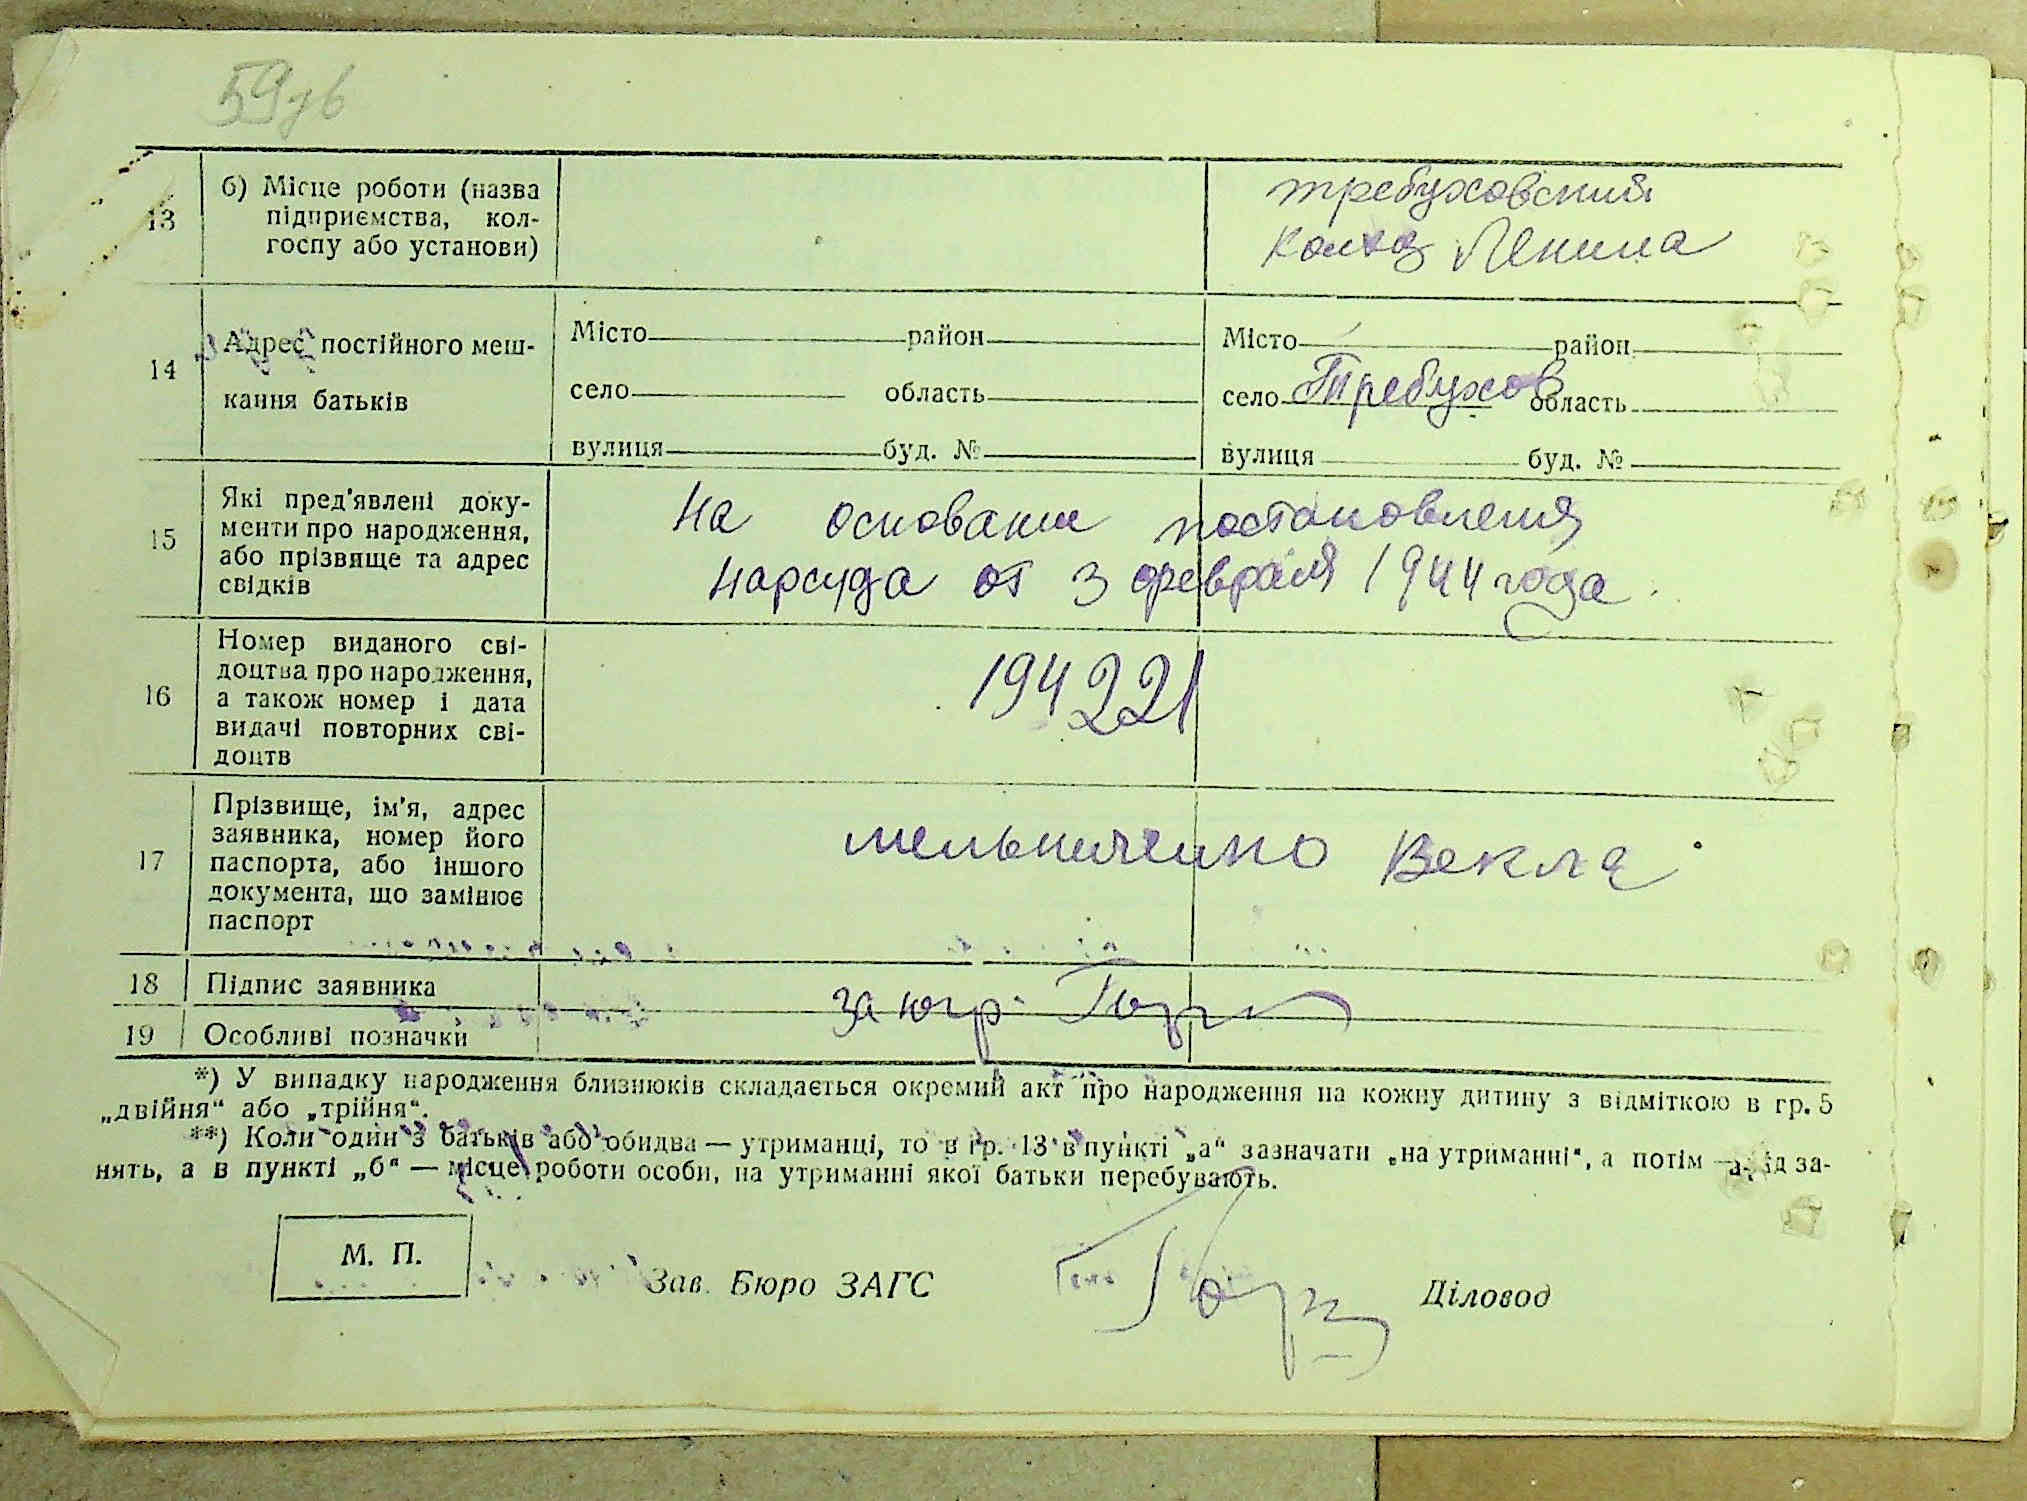 59зв
13
б) Місце роботи (назва
підприємства, кол-
госпу або установи)
требуховский
колхоз Ленина
14
Адрес постійного меш-
кання батьків
Місто район
село область
вулиця буд. №
Місто район
село Требухов область
вулиця буд. №
15
Які пред'явлені доку-
менти про народження,
або прізвище та адрес
свідків
На основании постановления
нарсуда от 3 февраля 1944 года.
16
Номер виданого сві-
доцтва про народження,
а також номер і дата
видачі повторних сві-
доцтв
194221
17
Прізвище, ім'я, адрес
заявника, номер його
паспорта, або іншого
документа, що замінює
паспорт
мельниченко Векла
18
Підпис заявника
за
19
Особливі позначки
*) У випадку народження близнюків складається окремий акт про народження на кожну дитину з відміткою в гр. 5
„двійня“ або „трійня“.
**) Коли один з батьків або обидва — утриманці, то в гр. 13 в пункті „а“ зазначати „на утриманні“, а потім — рід за-
нять, а в пункті „б“ — місце роботи особи, на утриманні якої батьки перебувають.
М. П.
Зав. Бюро ЗАГС
Діловод